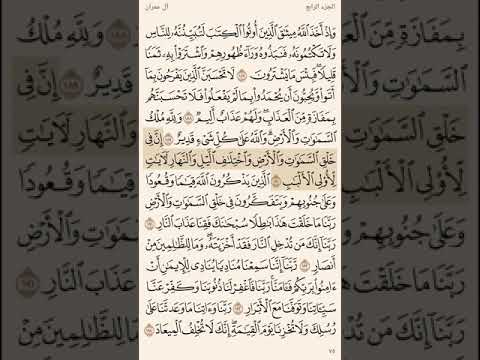 الجزء الرابع
آل عمران
وَإِذْ أَخَذَ ٱللَّهُ مِيثَٰقَ ٱلَّذِينَ أُوتُوا۟ ٱلْكِتَٰبَ لَتُبَيِّنُنَّهُۥ لِلنَّاسِ
وَلَا تَكْتُمُونَهُۥ فَنَبَذُوهُ وَرَآءَ ظُهُورِهِمْ وَٱشْتَرَوْا۟ بِهِۦ ثَمَنًا
قَلِيلًا ۖ فَبِئْسَ مَا يَشْتَرُونَ ١٨٧ لَا تَحْسَبَنَّ ٱلَّذِينَ يَفْرَحُونَ بِمَآ
أَتَوا۟ وَّيُحِبُّونَ أَن يُحْمَدُوا۟ بِمَا لَمْ يَفْعَلُوا۟ فَلَا تَحْسَبَنَّهُم
بِمَفَازَةٍ مِّنَ ٱلْعَذَابِ ۖ وَلَهُمْ عَذَابٌ أَلِيمٌ ١٨٨ وَلِلَّهِ مُلْكُ
ٱلسَّمَٰوَٰتِ وَٱلْأَرْضِ ۗ وَٱللَّهُ عَلَىٰ كُلِّ شَىْءٍ قَدِيرٌ ١٨٩ إِنَّ فِى
خَلْقِ ٱلسَّمَٰوَٰتِ وَٱلْأَرْضِ وَٱخْتِلَٰفِ ٱلَّيْلِ وَٱلنَّهَارِ لَءَايَٰتٍ
لِّأُو۟لِى ٱلْأَلْبَٰبِ ١٩٠ ٱلَّذِينَ يَذْكُرُونَ ٱللَّهَ قِيَٰمًا وَقُعُودًا
وَعَلَىٰ جُنُوبِهِمْ وَيَتَفَكَّرُونَ فِى خَلْقِ ٱلسَّمَٰوَٰتِ وَٱلْأَرْضِ
رَبَّنَا مَا خَلَقْتَ هَٰذَا بَٰطِلًا سُبْحَٰنَكَ فَقِنَا عَذَابَ ٱلنَّارِ ١٩١
رَبَّنَآ إِنَّكَ مَن تُدْخِلِ ٱلنَّارَ فَقَدْ أَخْزَيْتَهُۥ ۖ وَمَا لِلظَّٰلِمِينَ مِنْ
أَنصَارٍ ١٩٢ رَّبَّنَآ إِنَّنَا سَمِعْنَا مُنَادِيًا يُنَادِى لِلْإِيمَٰنِ أَنْ
ءَامِنُوا۟ بِرَبِّكُمْ فَـَٔامَنَّا ۚ رَبَّنَا فَٱغْفِرْ لَنَا ذُنُوبَنَا وَكَفِّرْ عَنَّا
سَيِّـَٔاتِنَا وَتَوَفَّنَا مَعَ ٱلْأَبْرَارِ ١٩٣ رَبَّنَا وَءَاتِنَا مَا وَعَدتَّنَا عَلَىٰ
رُسُلِكَ وَلَا تُخْزِنَا يَوْمَ ٱلْقِيَٰمَةِ ۗ إِنَّكَ لَا تُخْلِفُ ٱلْمِيعَادَ ١٩٤
٧٥